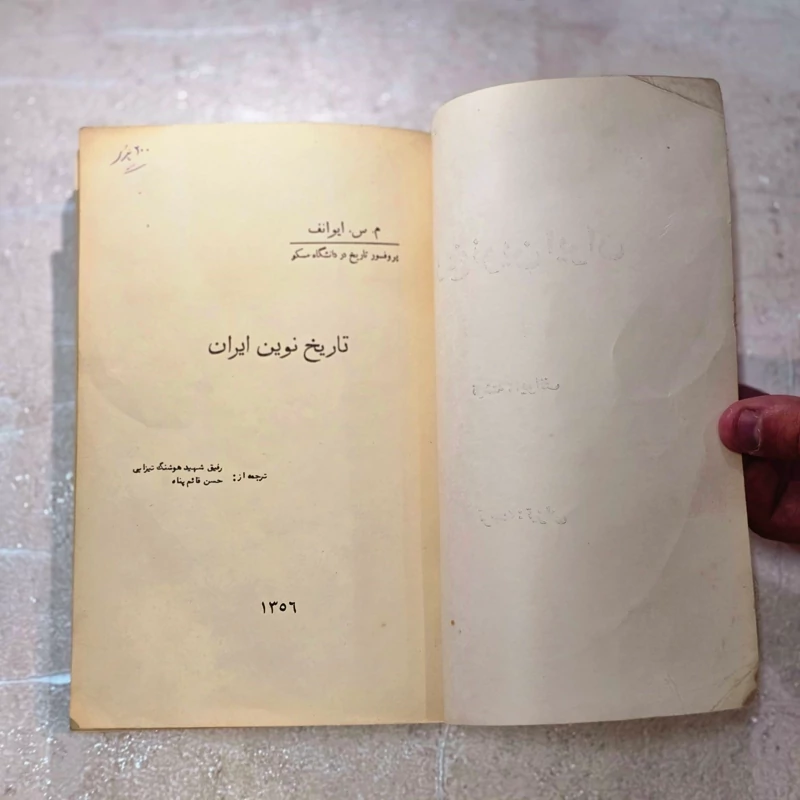 ۲۰۰
م. س. ایوانف
پروفسور تاریخ در دانشگاه مسکو
تاریخ نوین ایران
ترجمه از: رفیق شهید هوشنگ تیزابی
حسن قائم پناه
۱۳۵۶